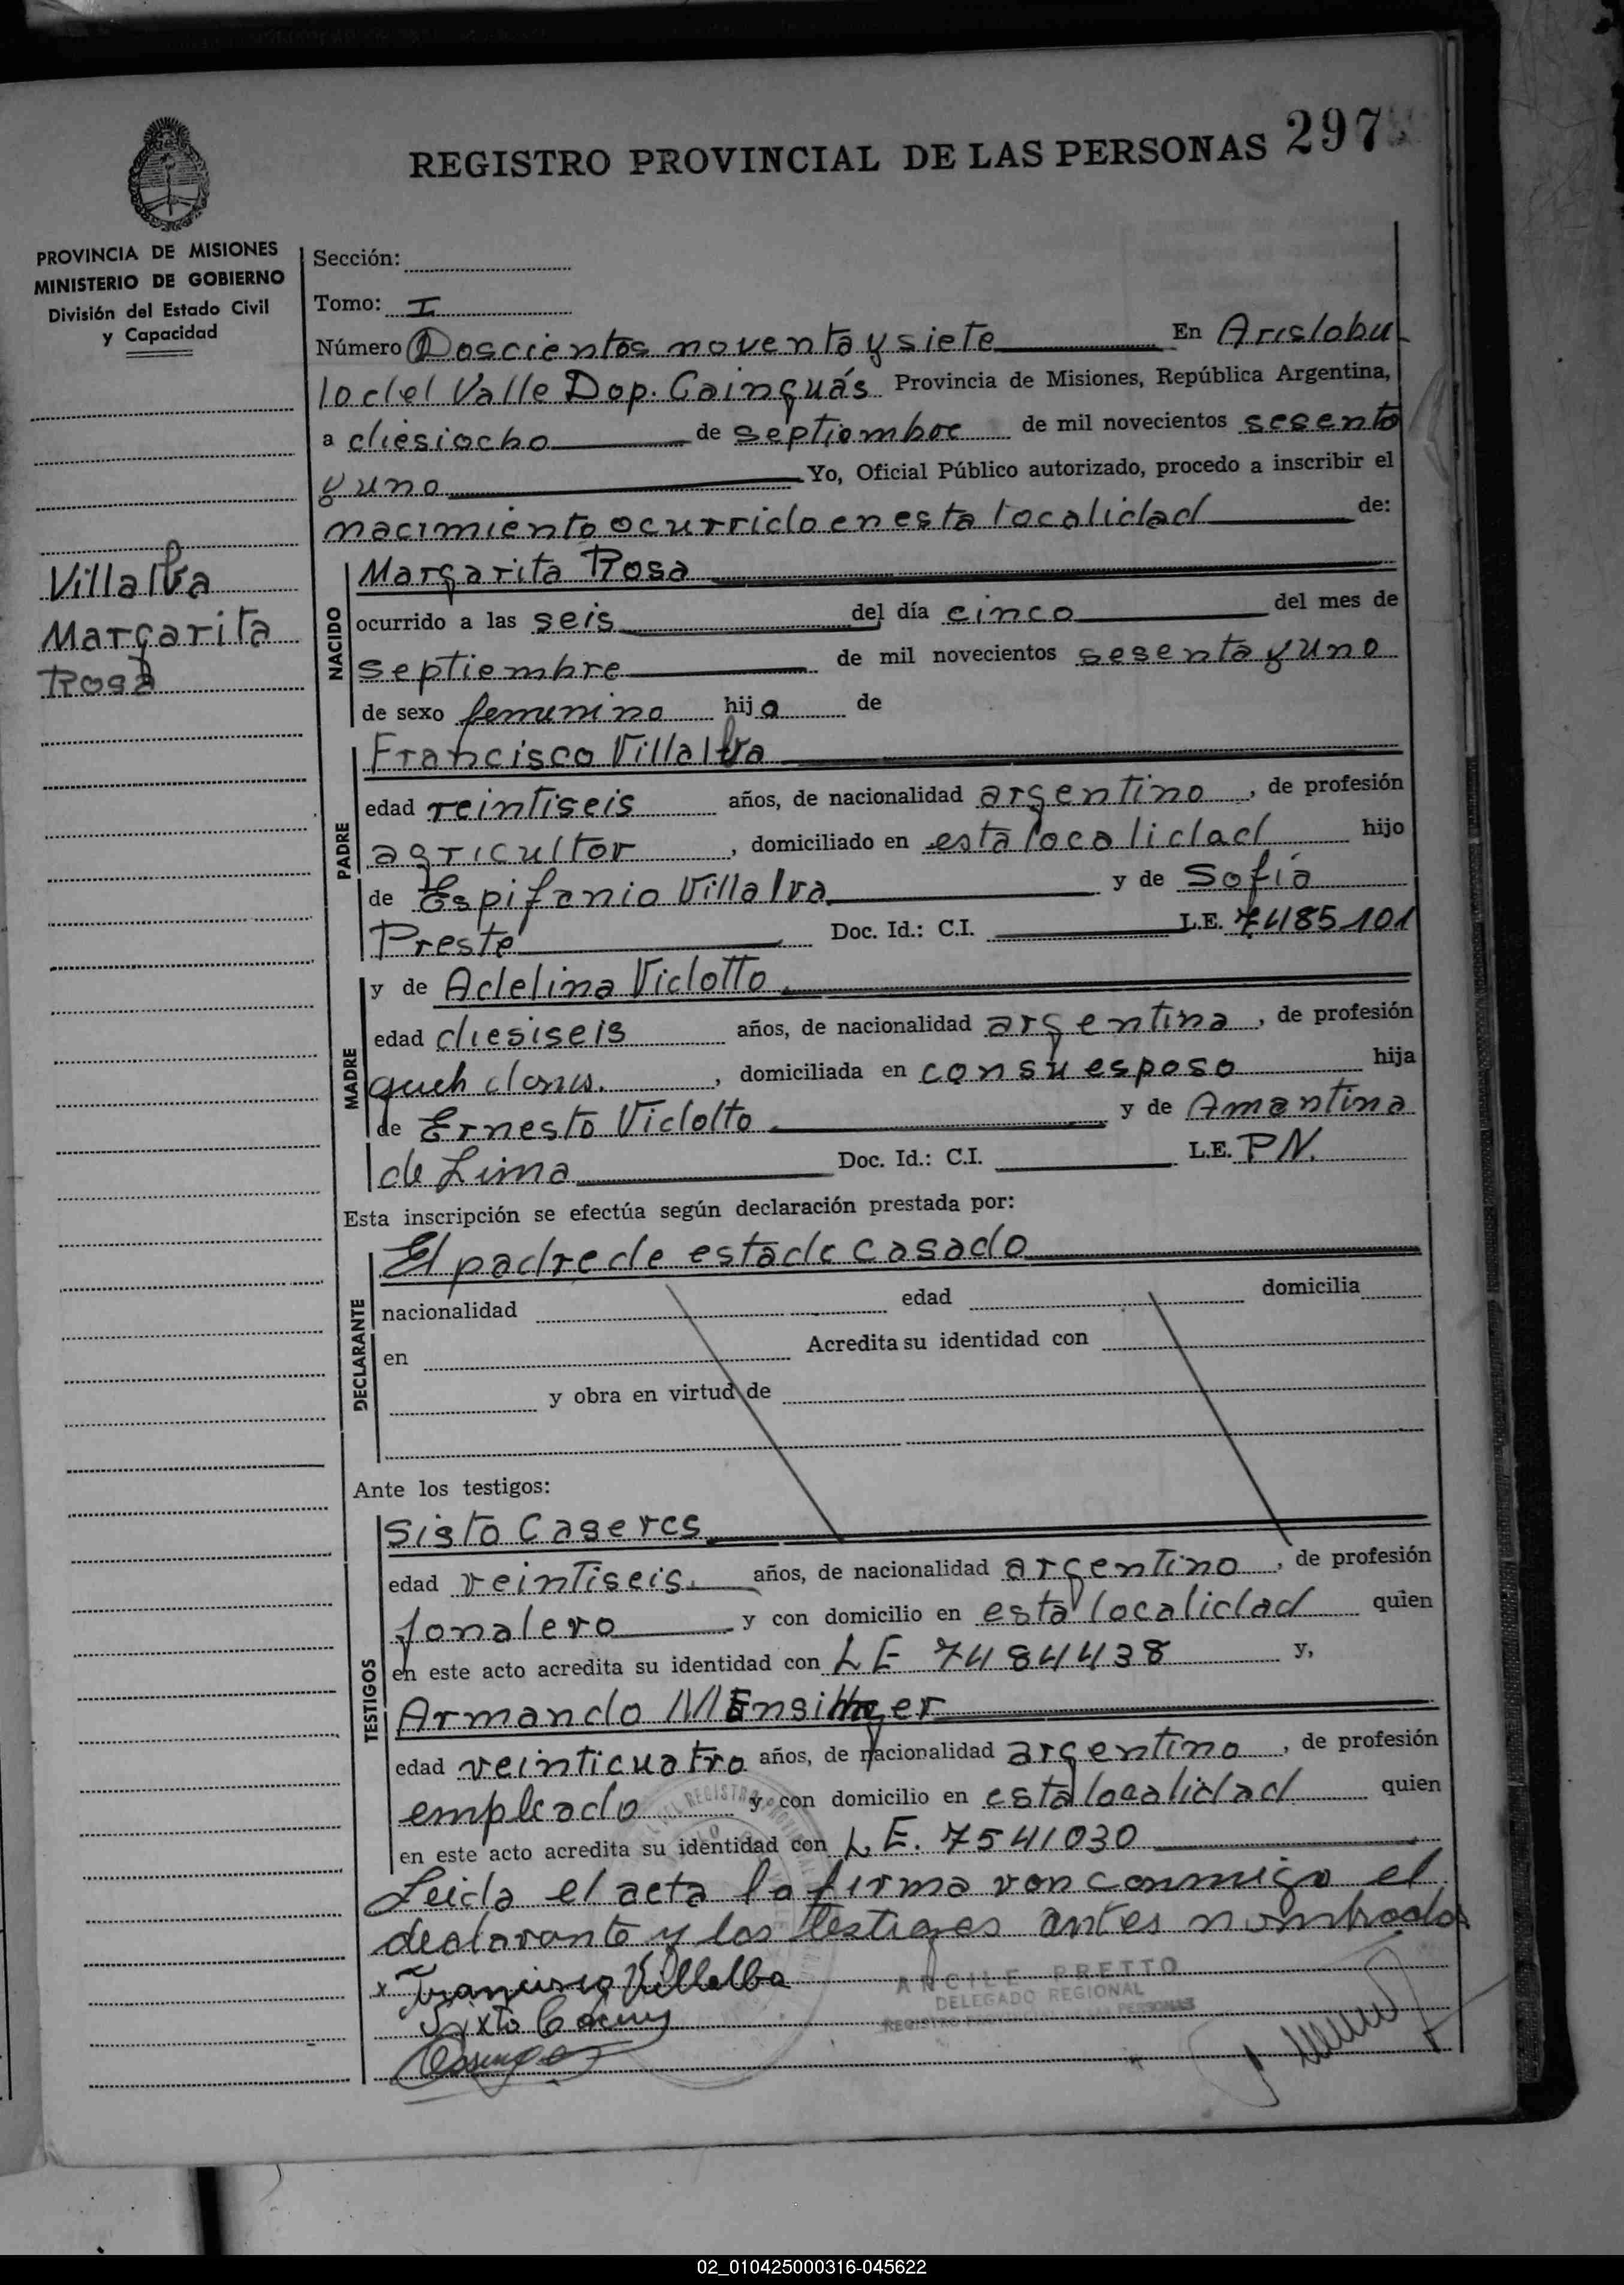 REGISTRO PROVINCIAL DE LAS PERSONAS 297
PROVINCIA DE MISIONES
MINISTERIO DE GOBIERNO
División del Estado Civil
y Capacidad
Villalba
Margarita
Rosa
Sección:
Tomo: I
Número Doscientos noventa y siete En Aristobu
lo del Valle Dep. Cainguás Provincia de Misiones, República Argentina,
a diesiocho de septiembre de mil novecientos sesenta
y uno Yo, Oficial Público autorizado, procedo a inscribir el
nacimiento ocurrido en esta localidad de:
NACIDO
Margarita Rosa
ocurrido a las seis del día cinco del mes de
septiembre de mil novecientos sesenta y uno
de sexo femenino hija de
PADRE
Francisco Villalba
edad veintiseis años, de nacionalidad argentino, de profesión
agricultor, domiciliado en esta localidad hijo
de Espifanio Villalva y de Sofía
Preste Doc. Id.: C.I. L.E. 7485101
MADRE
y de Adelina Vidotto
edad diesiseis años, de nacionalidad argentina, de profesión
queh doms., domiciliada en con su esposo hija
de Ernesto Vidotto y de Amantina
de Lima Doc. Id.: C.I. L.E. P.N.
Esta inscripción se efectúa según declaración prestada por:
DECLARANTE
El padre de estado casado
nacionalidad edad domicilia
en Acredita su identidad con
y obra en virtud de
Ante los testigos:
TESTIGOS
Sisto Caseres
edad veintiseis años, de nacionalidad argentino, de profesión
jonalero y con domicilio en esta localidad quien
en este acto acredita su identidad con LE 7484438 y,
Armando
edad veinticuatro años, de nacionalidad argentino, de profesión
empleado y con domicilio en esta localidad quien
en este acto acredita su identidad con L.E. 7541030
Leida el acta la firma von conmigo el
declarante y los testigos antes nombrados
x Francisco Villalba
Sixto
ANCILE PRETTO
DELEGADO REGIONAL
REGISTRO PROVINCIAL DE LAS PERSONAS
02_010425000316-045622